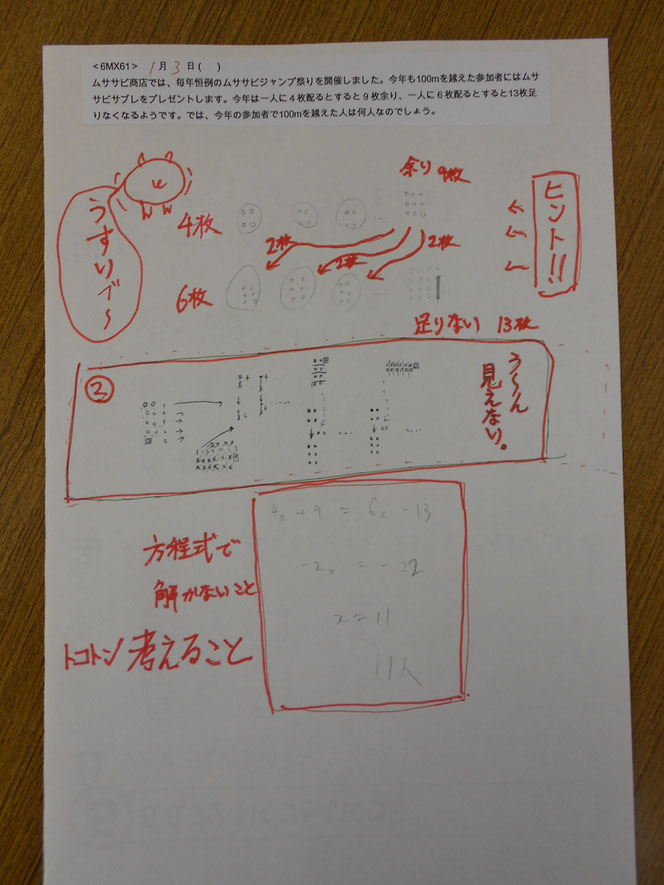 <6MX61> 1月 3日 ( )
ムササビ商店では、毎年恒例のムササビジャンプ祭りを開催しました。今年も100mを越えた参加者にはムサ
サビサブレをプレゼントします。今年は一人に4枚配るとすると9枚余り、一人に6枚配るとすると13枚足
りなくなるようです。では、今年の参加者で100mを越えた人は何人なのでしょう。
余り9枚
ヒント!!
うすいゾ〜
4枚
2枚
2枚
2枚
6枚
足りない 13枚
②
う〜ん
見えない。
4x+9 = 6x -13
-2x = -22
x = 11
11人
方程式で
解かないこと
トコトン考えること